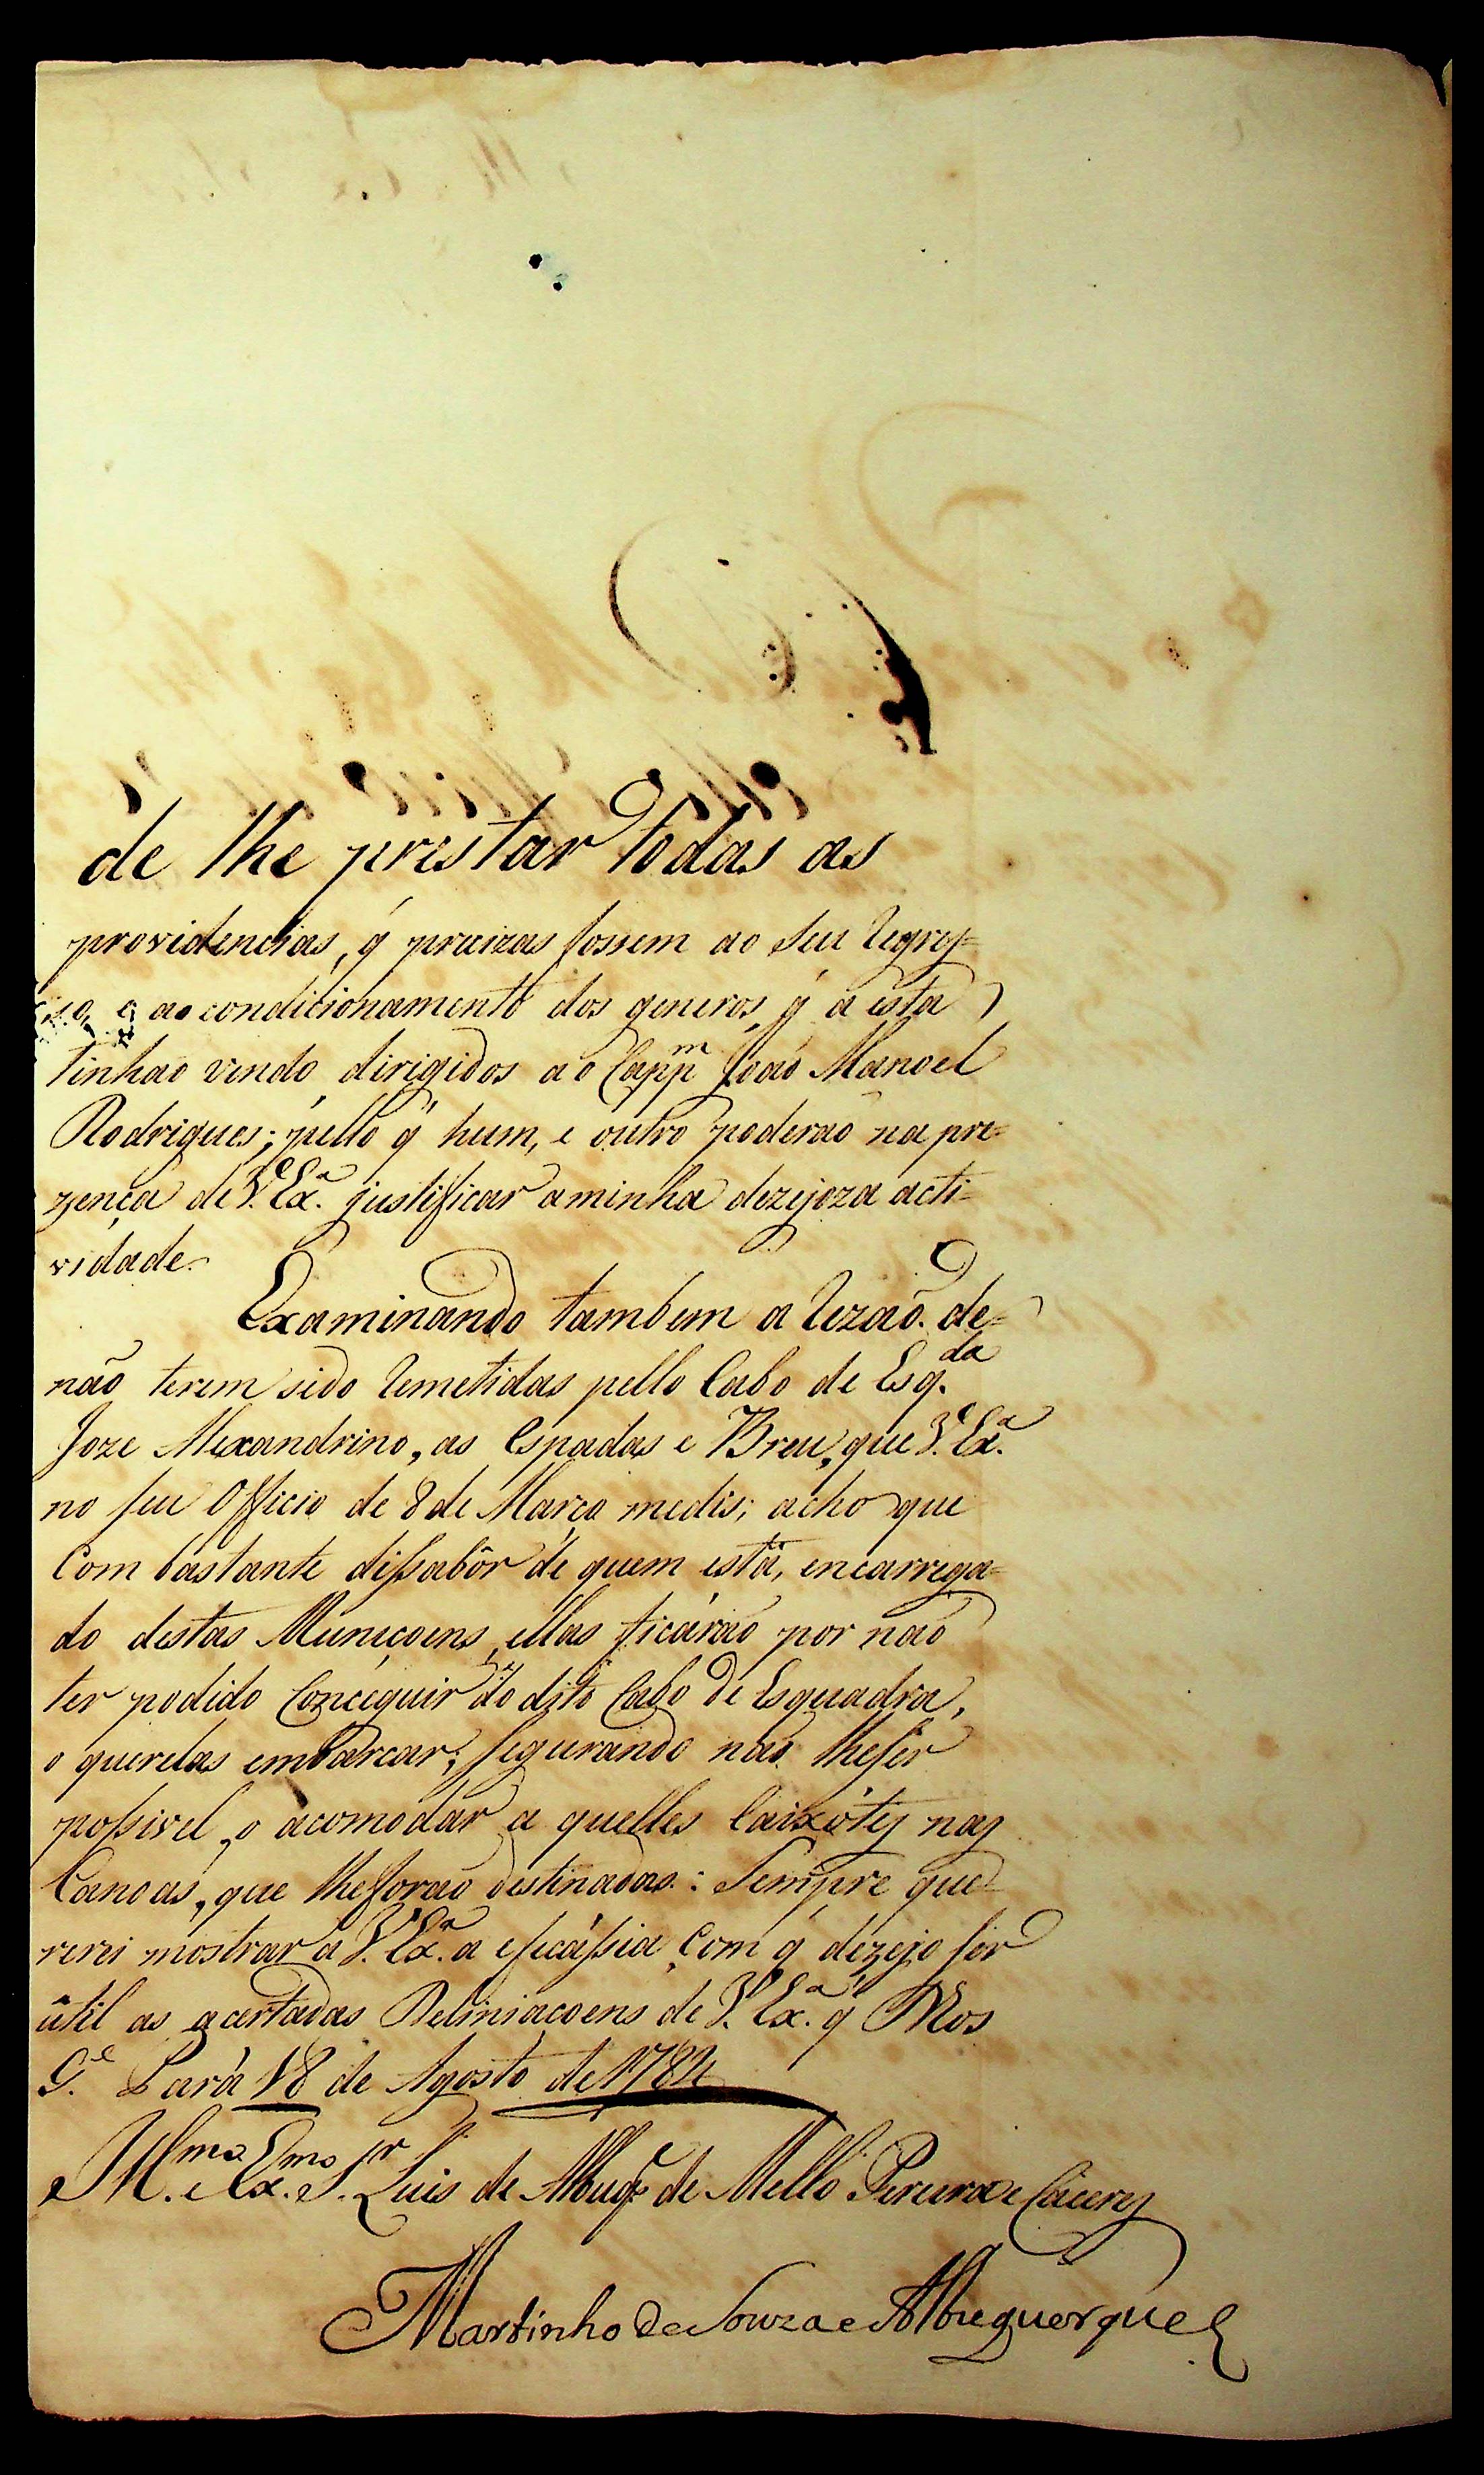 de lhe prestar todas as
providencias, q̃ precizas fossem ao seu regres=
so, e acondicionamento dos generos, q̃ a esta
tinhaõ vindo dirigidos ao Capp.m Joaõ Manoel
Rodrigues; pello q̃ hum, e outro poderaõ na pre=
zença de V. Ex.a justificar a minha dezejoza acti=
vidade.
Examinando tambem a rezaõ de=
não terem sido remetidas pello Cabo de Esq.da
Joze Alexandrino, as Espadas e Breu, que V. Ex.a
no seu Officio de 8 de Março medis; acho que
Com bastante dissabôr de quem está, encarrega=
do destas Muniçoens, ellas ficáraõ por naõ
ter podido Conceguir do dito Cabo de Esquadra,
o querelas embarcar; segurando naõ lheser
possivel, o acomodar a quelles Caixótes nas
Canoas, que lheforaõ destinadas: Sempre que=
rerei mostrar a V. Ex.a a eficássia, Com q̃ dezejo ser
util as acertadas Deliniaçoens de V. Ex.a q̃ D.s
G.e Pará 18 de Agosto de 1784
Ill.mo e Ex.mo S.r Luis de Albuq.e de Mello Pereira e Caceres
Martinho de Souza e Albuquerque